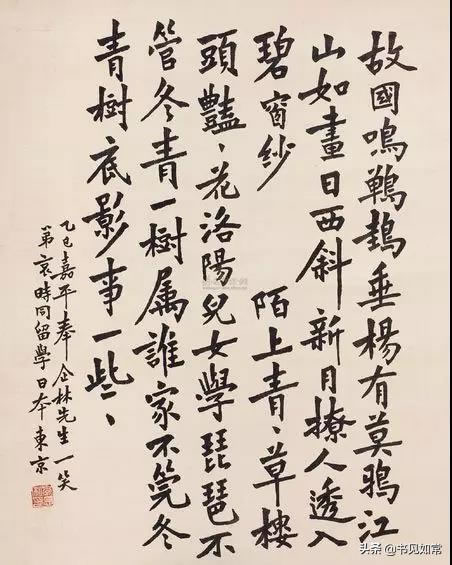 故國鳴垂楊有莫鴉江
山如畫日西斜新月撩人透入
碧窗紗 陌上青、草樓
頭豔、花洛陽兒女學琵琶不
管冬青一樹属誰家不筦冬
青樹底影事一些、
乙巳嘉平奉企林先生一笑
弟哀時同留學日本東京
头条 @书见如常